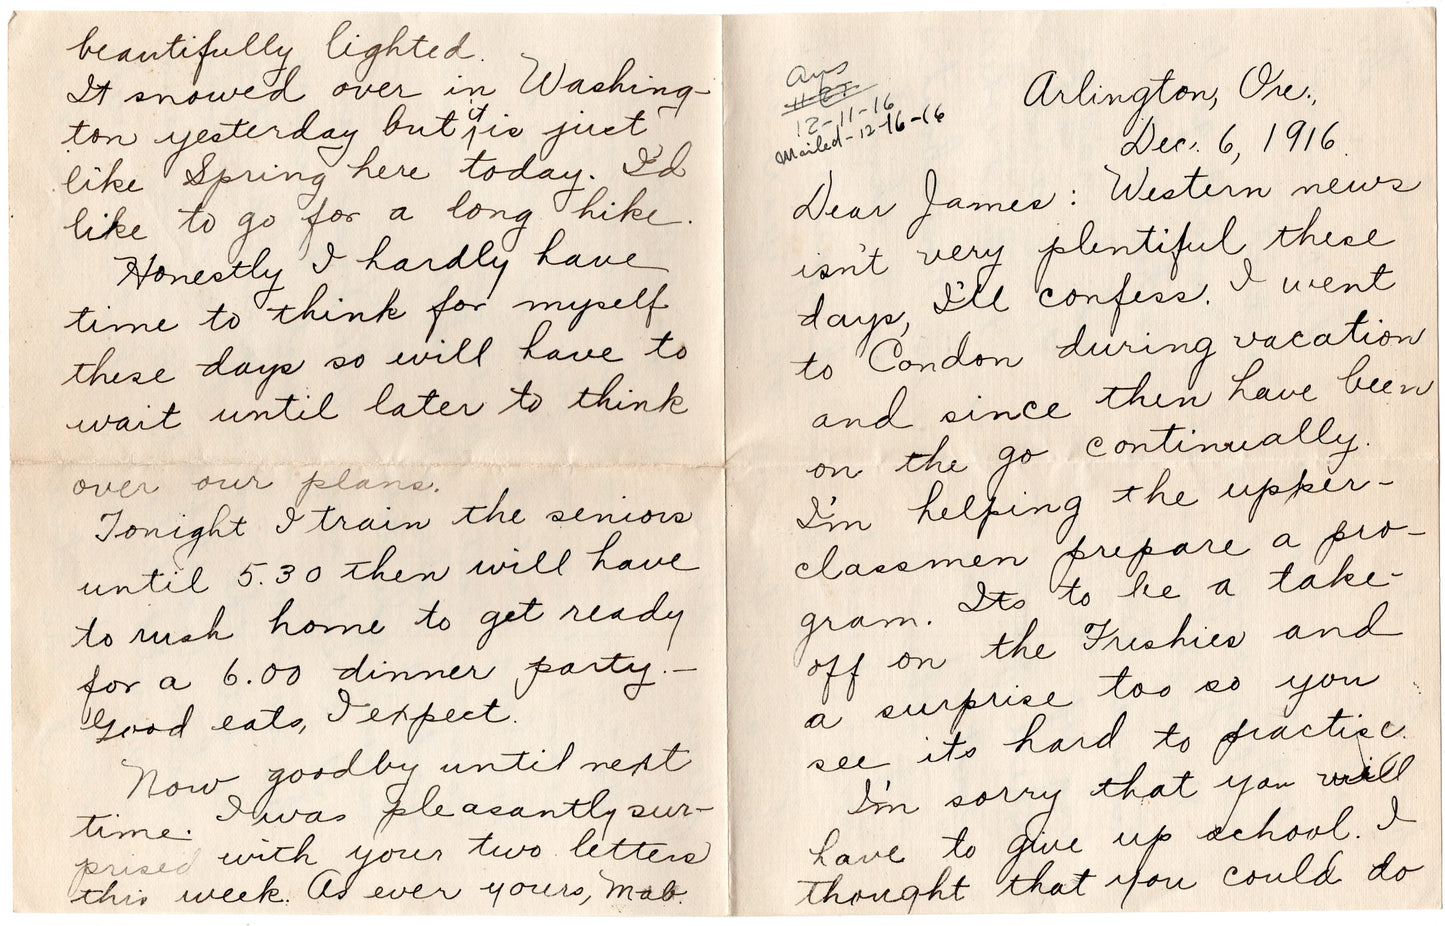 Ans
12-11-16
Mailed-12-16-16
Arlington, Ore.,
Dec. 6, 1916.
Dear James: Western news
isn't very plentiful these
days, I'll confess. I went
to Condon during vacation
and since then have been
on the go continually.
I'm helping the upper-
classmen prepare a pro-
gram. Its to be a take-
off on the Freshies and
a surprise too so you
see its hard to practise.
I'm sorry that you will
have to give up school. I
thought that you could do
beautifully lighted.
It snowed over in Washing-
ton yesterday but it is just
like Spring here today. I'd
like to go for a long hike.
Honestly I hardly have
time to think for myself
these days so will have to
wait until later to think
over our plans.
Tonight I train the seniors
until 5.30 then will have
to rush home to get ready
for a 6.00 dinner party.—
Good eats, I expect.
Now goodby until next
time. I was pleasantly sur-
prised with your two letters
this week. As ever yours, Mab.